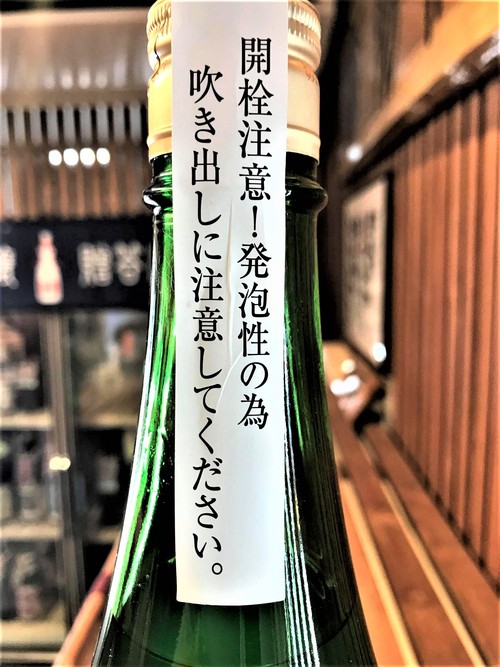 開栓注意！発泡性の為
吹き出しに注意してください。
贈答